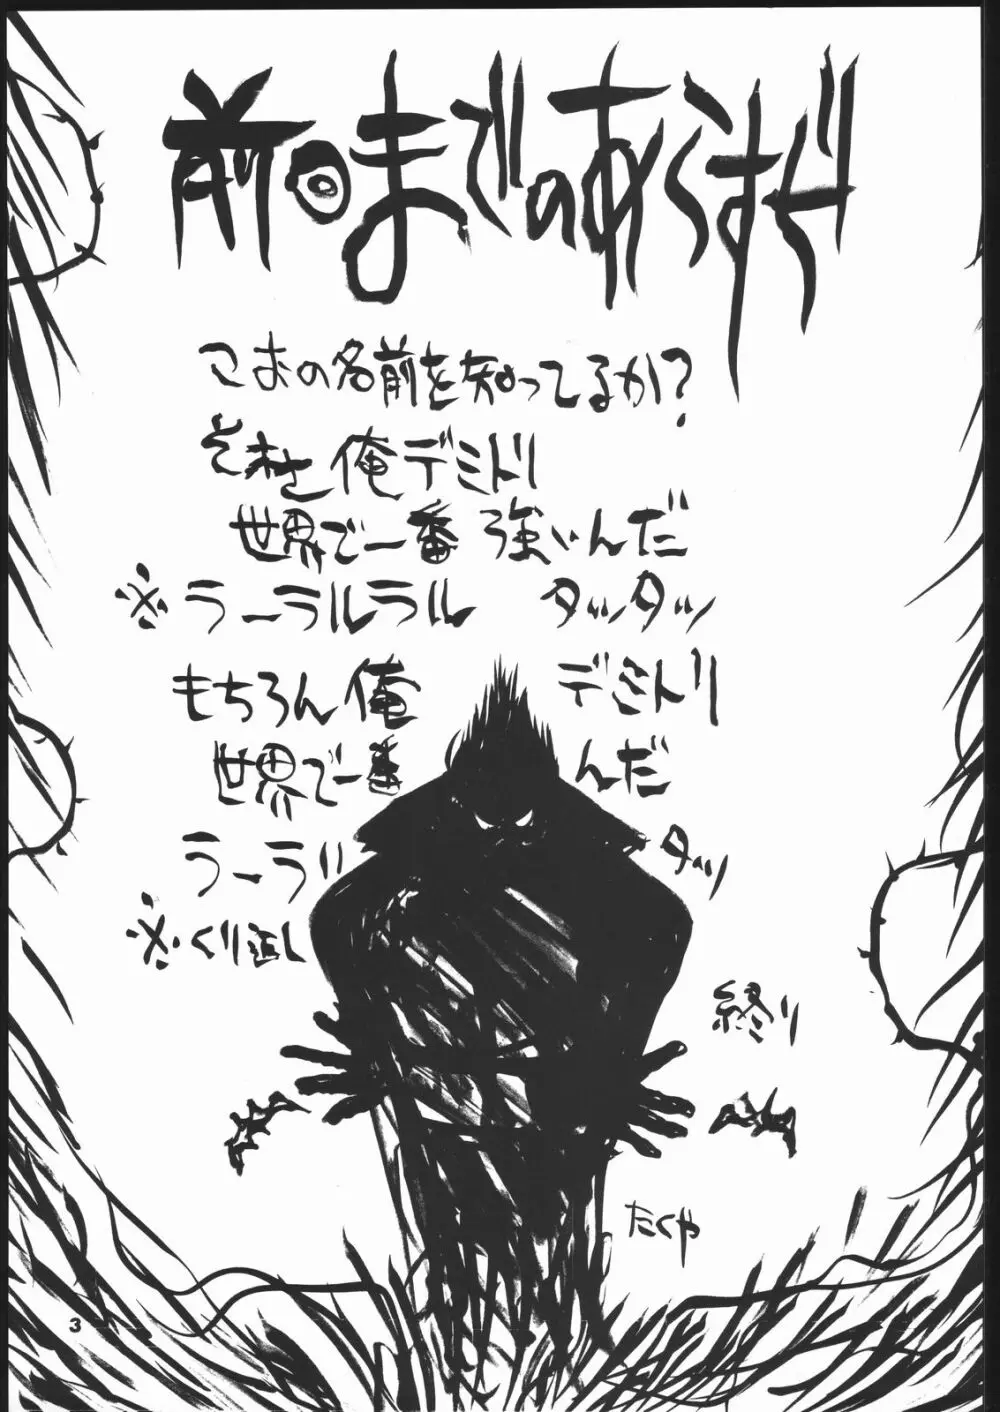 前回までのあらすじ
この名前を知ってるか?
それさ俺デミトリ
世界で一番強いんだ
※ラーラルラル タッタッ
もちろん俺 デミトリ
世界で一番 んだ
ラーラ タッ
※くり返し
終り
たくや
3